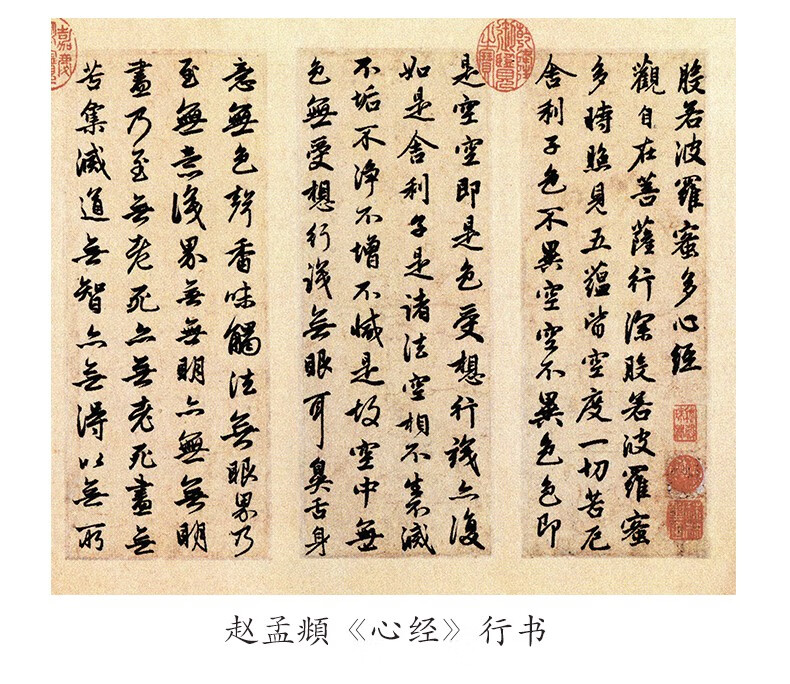 般若波羅蜜多心經
觀自在菩薩行深般若波羅蜜
多時照見五蘊皆空度一切苦厄
舍利子色不異空空不異色色即
是空空即是色受想行識亦復
如是舍利子是諸法空相不生不滅
不垢不淨不增不減是故空中無
色無受想行識無眼耳鼻舌身
意無色聲香味觸法無眼界乃
至無意識界無無明亦無無明
盡乃至無老死亦無老死盡無
苦集滅道無智亦無得以無所
赵孟頫《心经》行书